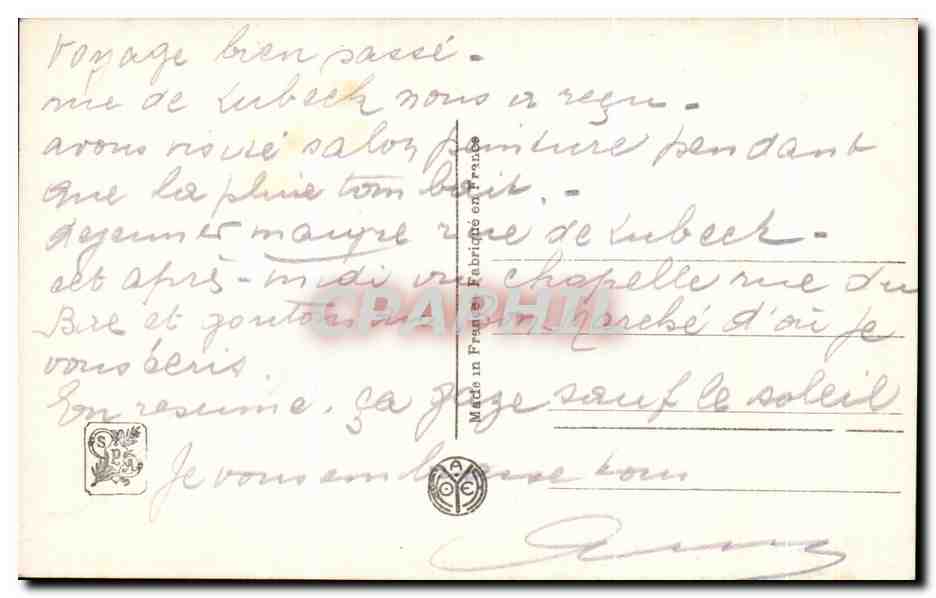 Voyage bien passé -
rue de Lubeck nous a reçu -
avons visité salon peinture pendant
que la pluie tombait. -
dejeuner maigre rue de Lubeck -
cet après-midi vu chapelle rue du
Bac et goutons au bon Marché d'où je
vous écris.
En resumé, ça gaze sauf le soleil
Je vous embrasse tous
Made in France - Fabriqué en France
CPAPHIL